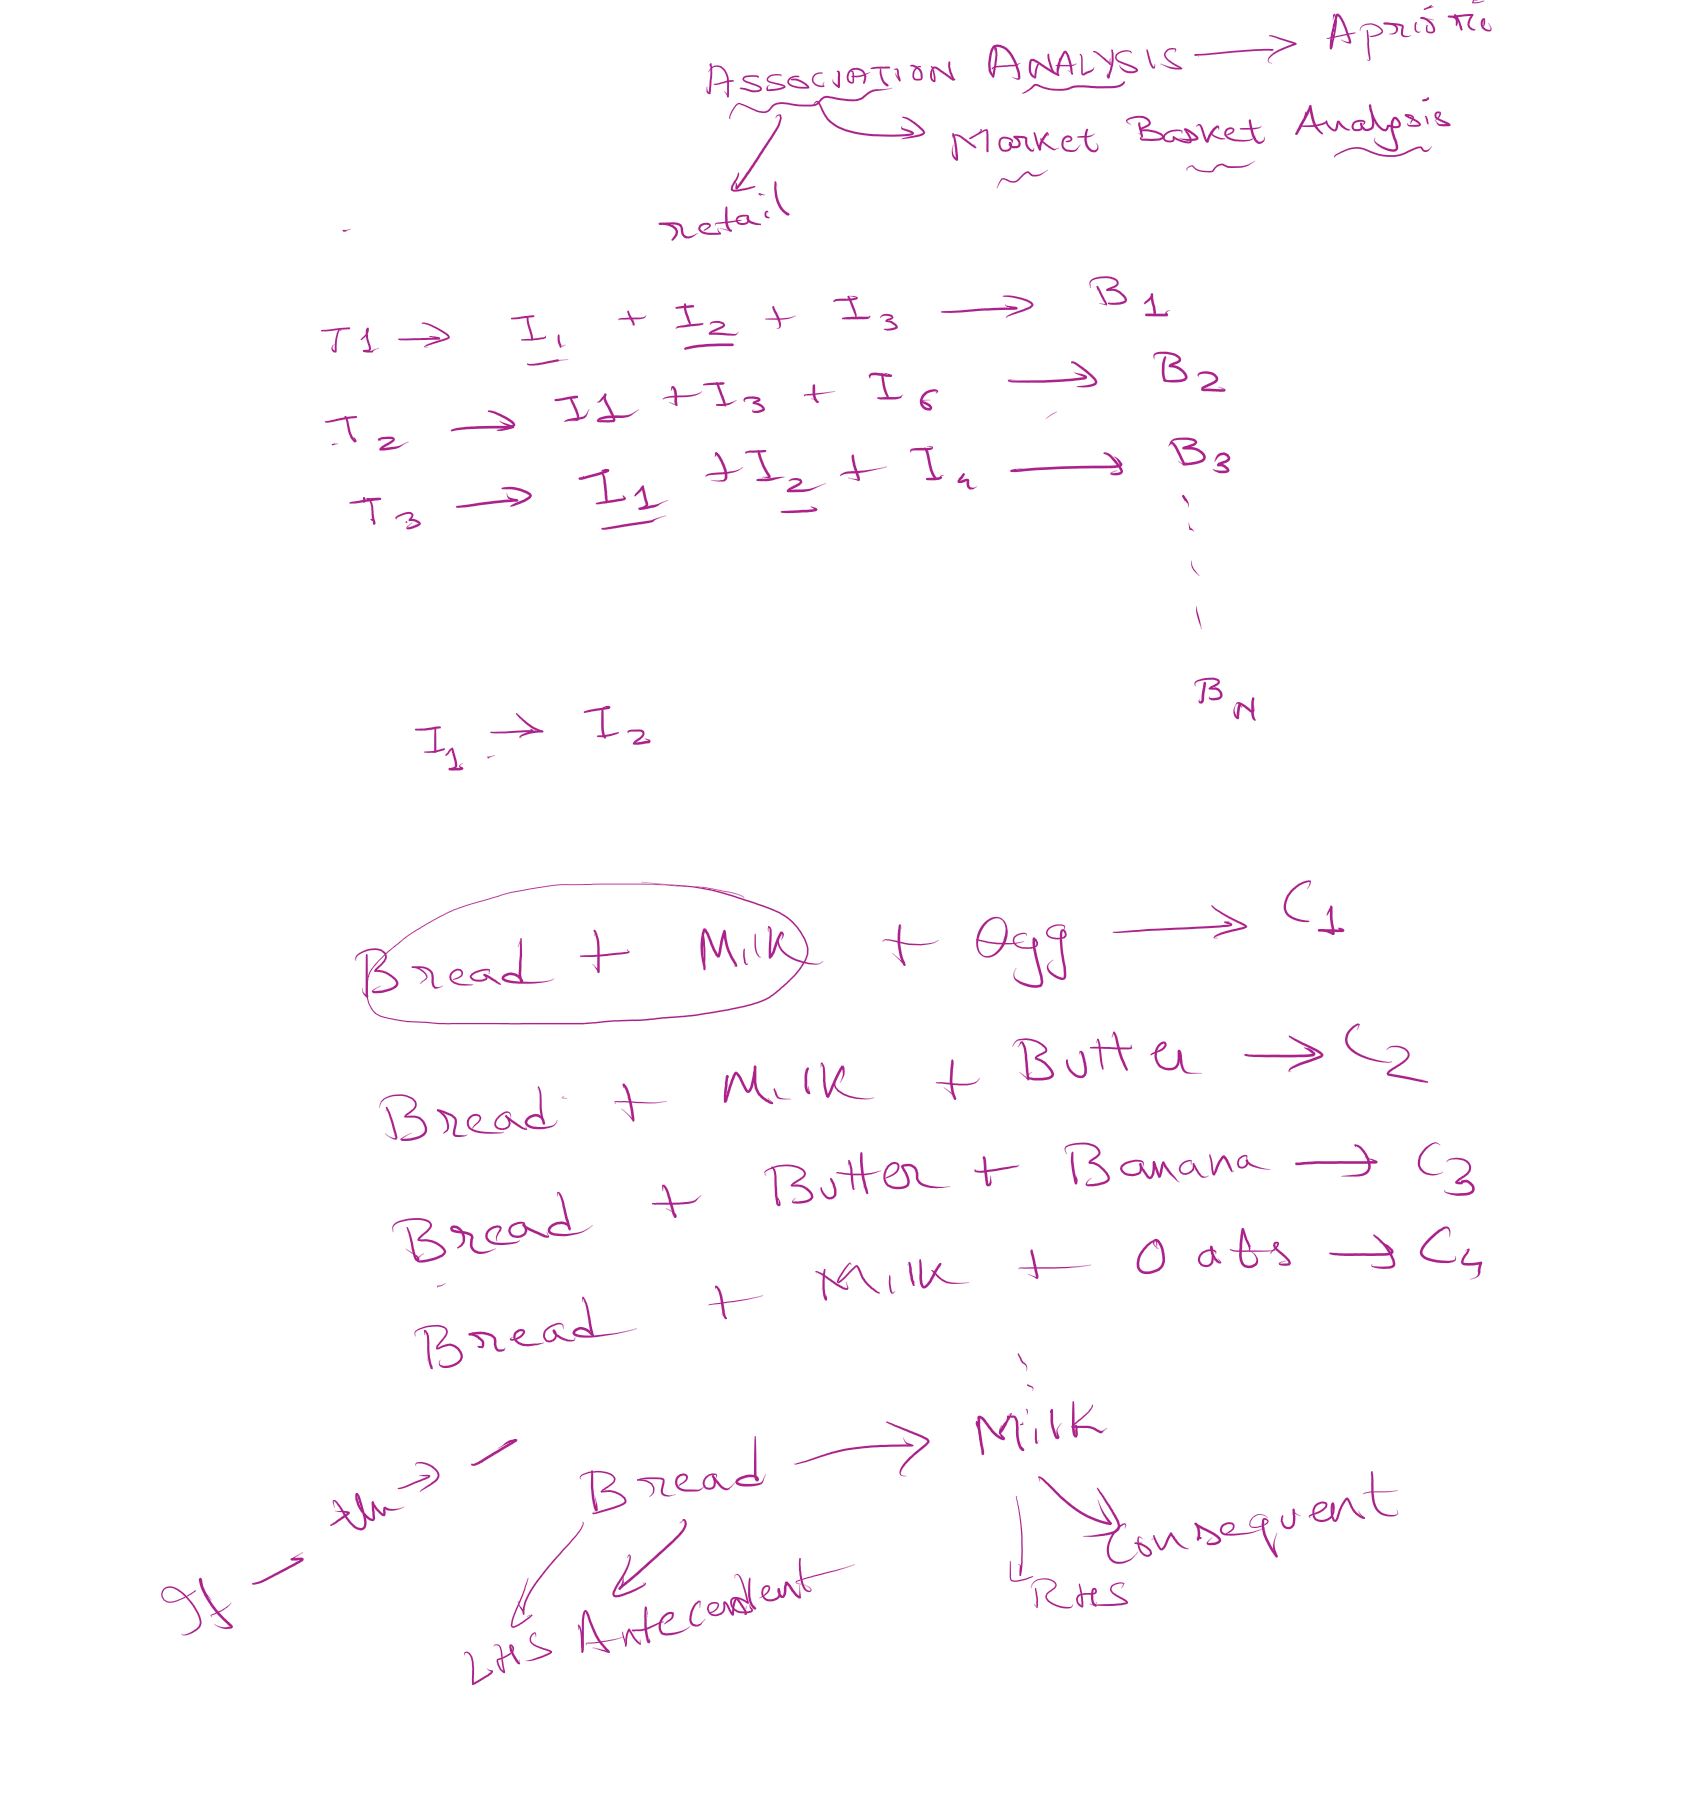 ASSOCIATION ANALYSIS → Apriori
Market Basket Analysis
retail
T1 → I1 + I2 + I3 → B1
T2 → I1 + I3 + I6 → B2
T3 → I1 + I2 + I4 → B3
BN
I1 → I2
Bread + Milk + Egg → C1
Bread + Milk + Butter → C2
Bread + Butter + Banana → C3
Bread + Milk + Oats → C4
If — then → — Bread → Milk
LHS Antecendent RHS Consequent